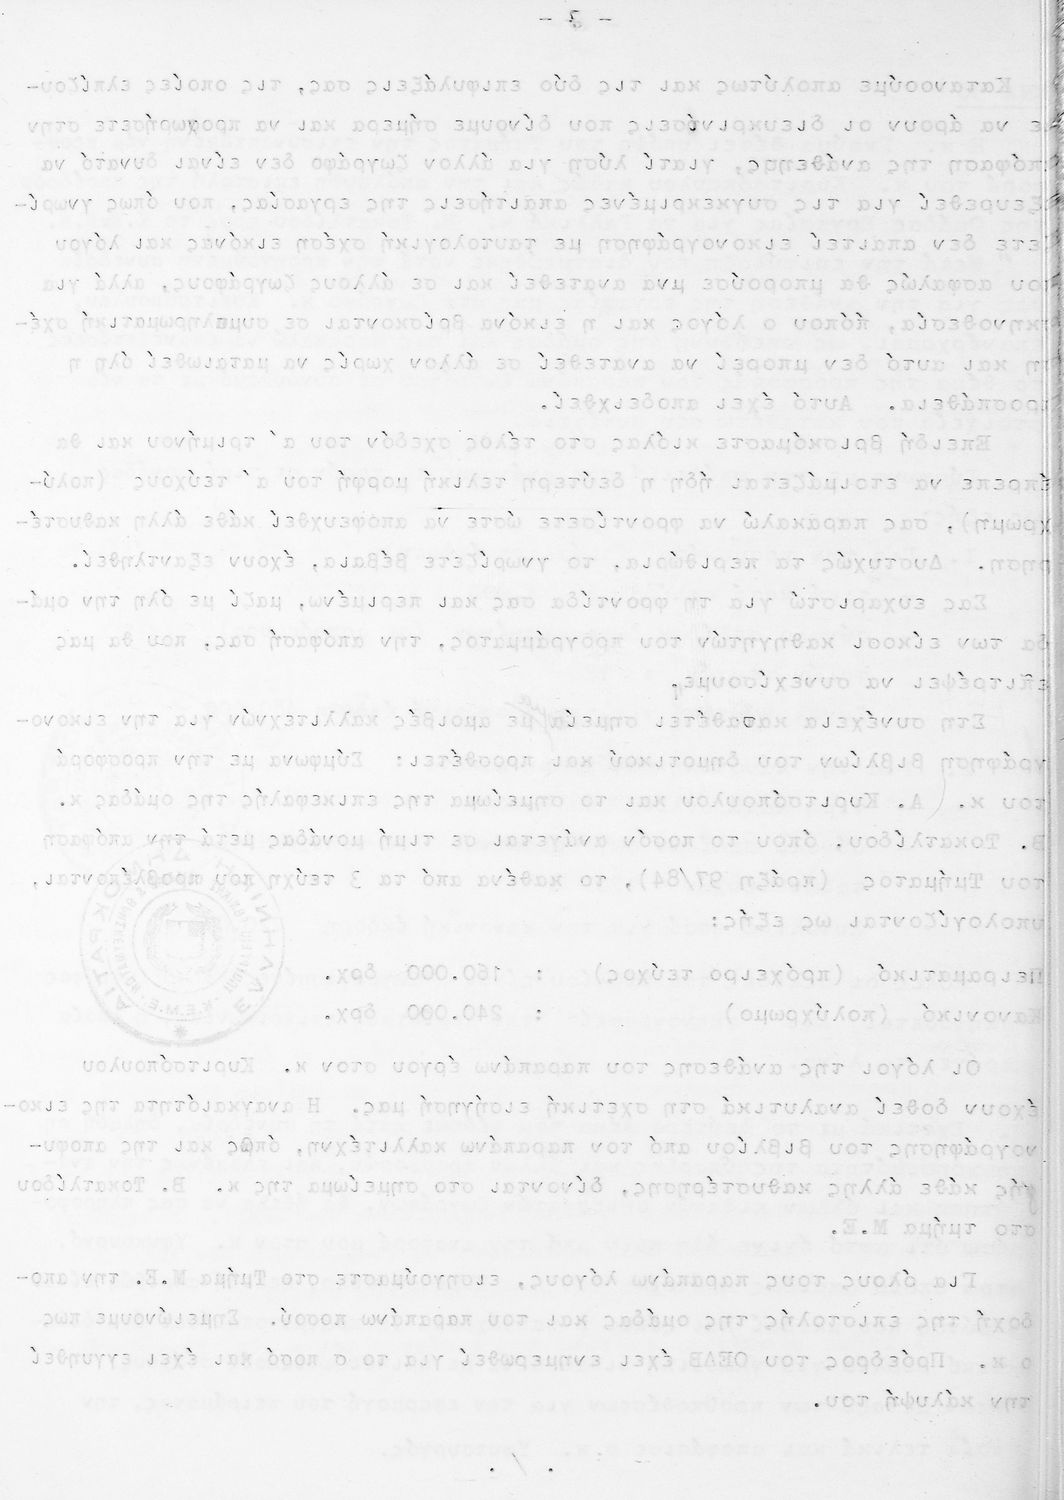 - 3 -
Κατανοούμε απολύτως και τις δύο επιφυλάξεις σας, τις οποίες ελπίζου-
με να άρουν οι διευκρινήσεις που δίνουμε σήμερα και να προχωρήσετε στην
απόφαση της ανάθεσης, γιατί λύση για άλλον ζωγράφο δεν είναι δυνατό να
εξευρεθεί για τις συγκεκριμένες απαιτήσεις της εργασίας, που όπως γνωρί-
ζετε δεν απαιτεί εικονογράφηση με ταυτολογική σχέση εικόνας και λόγου
που ασφαλώς θα μπορούσε μνα ανατεθεί και σε άλλους ζωγράφους, αλλά για
σκηνοθεσία, πόπου ο λόγος και η εικόνα βρίσκονται σε συμπληρωματική σχέ-
ση και αυτό δεν μπορεί να ανατεθεί σε άλλον χωρίς να ματαιωθεί όλη η
προσπάθεια. Αυτό έχει αποδειχθεί.
Επειδή βρισκόμαστε κιόλας στο τέλος σχεδόν του α΄ τριμήνου και θα
έπρεπε να ετοιμάζεται ήδη η δεύτερη τελική μορφή του α΄ τεύχους (πολύ-
χρωμη), σας παρακαλώ να φροντίσετε ώστε νά απόφευχθεί κάθε άλλη καθυστέ-
ρηση. Δυστυχώς τα περιθώρια, το γνωρίζετε βέβαια, έχουν εξαντληθεί.
Σας ευχαριστώ για τη φροντίδα σας και περιμένω, μαζί με όλη την ομά-
δα των είκοσι καθηγητών του προγράμματος, την απόφασή σας, που θα μας
επιτρέψει να συνεχίσουμε.
Στη συνέχεια καταθέτει σημεία με αμοιβές καλλιτεχνών για την εικονο-
γράφηση βιβλίων του δημοτικού και προσθέτει: Σύμφωνα με την προσφορά
του κ. Α. Κυριτσόπουλου και το σημείωμα της επικεφαλής της ομάδας κ.
Β. Τοκατλίδου, όπου το ποσόν ανάγεται σε τιμή μονάδας μετά την απόφαση
του Τμήματος (πράξη 97/84), το καθένα από τα 3 τεύχη που προβλέπονται,
υπολογίζονται ως εξής:
Πειραματικό (πρόχειρο τεύχος) : 160.000 δρχ.
Κανονικό (πολύχρωμο) : 240.000 δρχ.
ΕΛΛΗΝΙΚΗ ΔΗΜΟΚΡΑΤΙΑ
Κ.Ε.Μ.Ε.
Οι λόγοι της ανάθεσης του παραπάνω έργου στον κ. Κυριτσόπουλου
έχουν δοθεί αναλυτικά στη σχετική εισήγησή μας. Η αναγκαιότητα της εικο-
νογράφησης του βιβλίου από τον παραπάνω καλλιτέχνη, όπως και της αποφυ-
γής κάθε άλλης καθυστέρησης, δίνονται στο σημείωμα της κ. Β. Τοκατλίδου
στο τμήμα Μ.Ε.
Για όλους τους παραπάνω λόγους, εισηγούμαστε στο Τμήμα Μ.Ε. την απο-
δοχή της επιστολής της ομάδας και του παραπάνω ποσού. Σημειώνουμε πως
ο κ. Πρόεδρος του ΟΕΔΒ έχει ενημερωθεί για το σ ποσό και έχει εγγυηθεί
την κάλυψή του.
./.